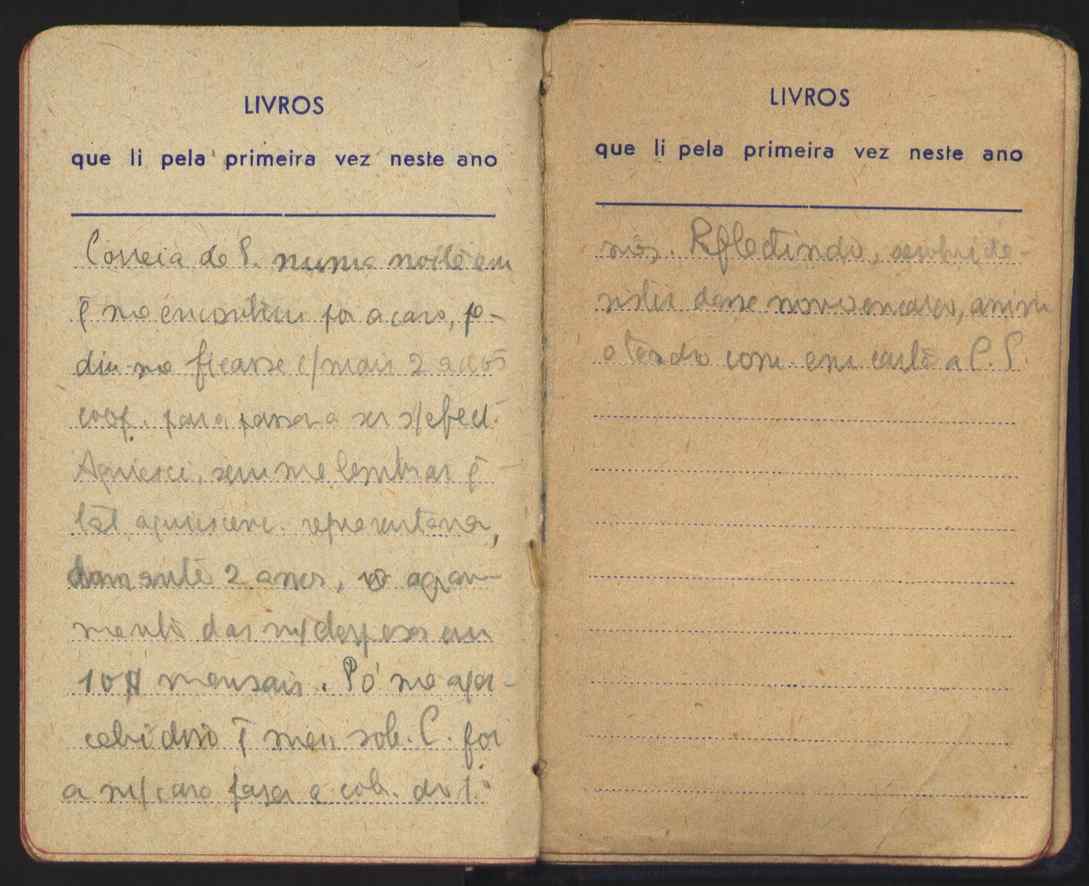 LIVROS
que li pela primeira vez neste ano
Correia de S. numa noite em
q̃ me encontrou por acaso, pe-
diu-me ficasse c/ mais 2 acções
coop. para passar a ser s/ efect.
Aquiesci, sem me lembrar q̃
tal aquiescenc. representava,
durante 2 anos, o agrava-
mento das m/ despesas em
10$ mensais. Só me aper-
cebi disso q̃ meu sob. C. foi
a m/ casa fazer a cob. do 1.º
LIVROS
que li pela primeira vez neste ano
mês. Reflectindo, resolvi de-
sistir desse novo encargo,
o tendo com. em carta a C. S.